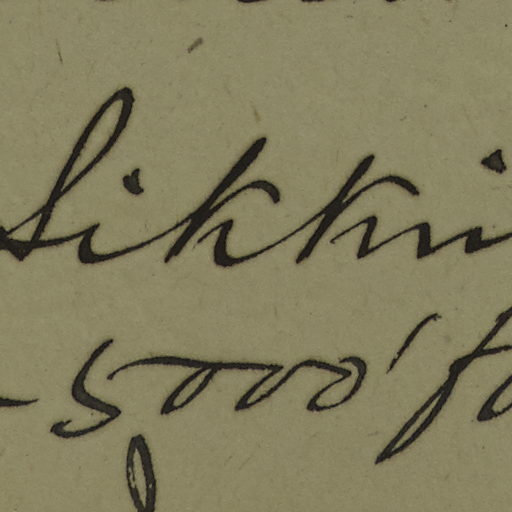 Sikki
- 5000' f